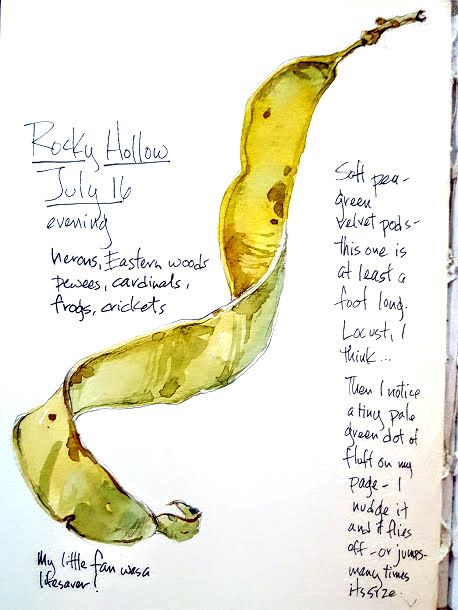 Rocky Hollow
July 16
evening
herons, Eastern woods
pewees, cardinals,
frogs, crickets
Soft pea-
green
velvet pods-
this one is
at least a
foot long.
Locust, I
think...
Then I notice
a tiny pale
green dot of
fluff on my
page - I
nudge it
and it flies
off - or jumps-
many times
its size.
My little fan was a
lifesaver!